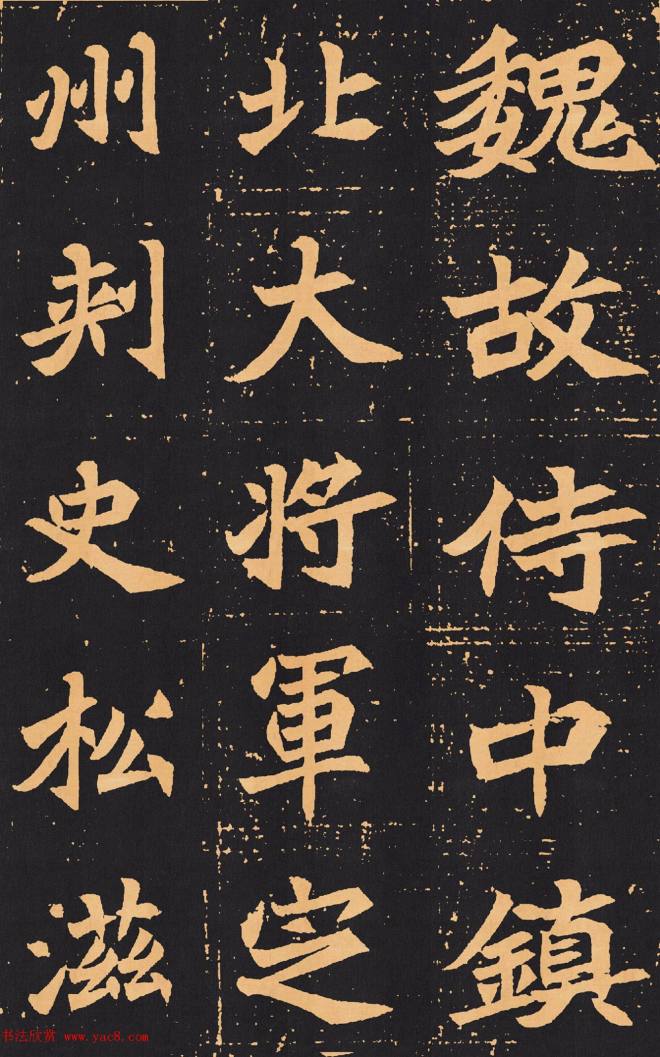 魏故侍中鎮
北大将軍定
州刺史松滋
书法欣赏 www.yac8.com